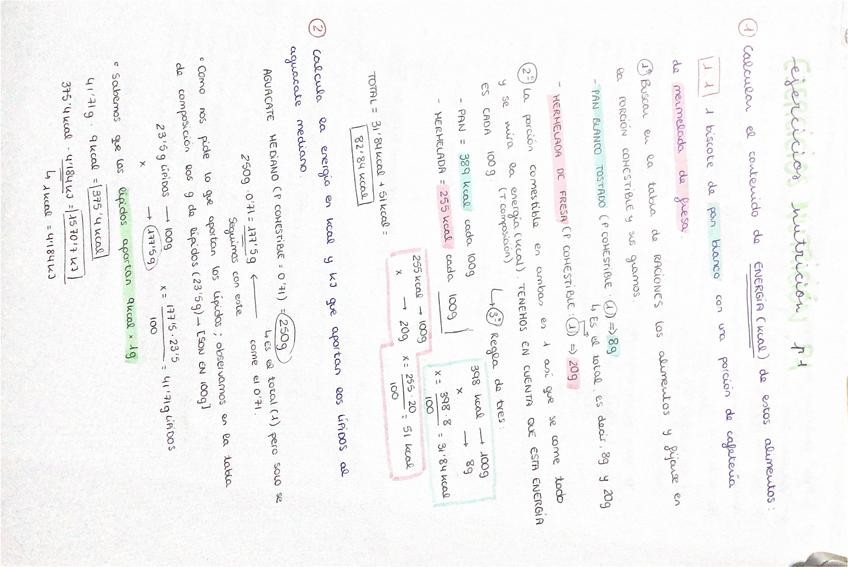 ejercicios nutrición p1
① Calcular el contenido de ENERGÍA (kcal) de estos alimentos:
1.1 1 biscote de pan blanco con una porción de cafetería
de mermelada de fresa
1º Buscar en la tabla de RACIONES los alimentos y fijarse en
la PORCIÓN COMESTIBLE y sus gramos.
- PAN BLANCO TOSTADO (P COMESTIBLE 1) ⇒ 8g
↳ Es el total es decir, 8g y 20g
- MERMELADA DE FRESA (P COMESTIBLE 1) ⇒ 20g
2º La porción comestible en ambas es 1 así que se come todo
y se mira la energía (kcal), TENEMOS EN CUENTA QUE ESTA ENERGÍA
ES CADA 100g (T composición) ↳ 3º Regla de tres:
- PAN = 389 kcal cada 100g
- MERMELADA = 255 kcal cada 100g
398 kcal → 100g
x → 8g
x = 398·8 / 100 = 31'84 kcal
255 kcal → 100g
x → 20g
x = 255·20 / 100 = 51 kcal
TOTAL = 31'84 kcal + 51 kcal =
82'84 kcal
② Calcula la energía en kcal y KJ que aportan los lípidos al
aguacate mediano.
AGUACATE MEDIANO (P COMESTIBLE = 0'71) 250g
↳ Es el total (1) pero solo se
come el 0'71.
250g · 0'71 = 177'5g ←
Seguimos con este
• Como nos pide lo que aportan los lípidos; observamos en la tabla
de composición los g de lípidos (23'5g) → [SON EN 100g]
23'5g lípidos → 100g
x → 177'5g
x = 177'5·23'5 / 100 = 41'71g lípidos
• Sabemos que los lípidos aportan 9kcal × 1g
41'71g · 9kcal = 375'4 kcal
375'4 kcal · 4'184 KJ = 1570'7 KJ
↳ 1 kcal = 4'184 KJ